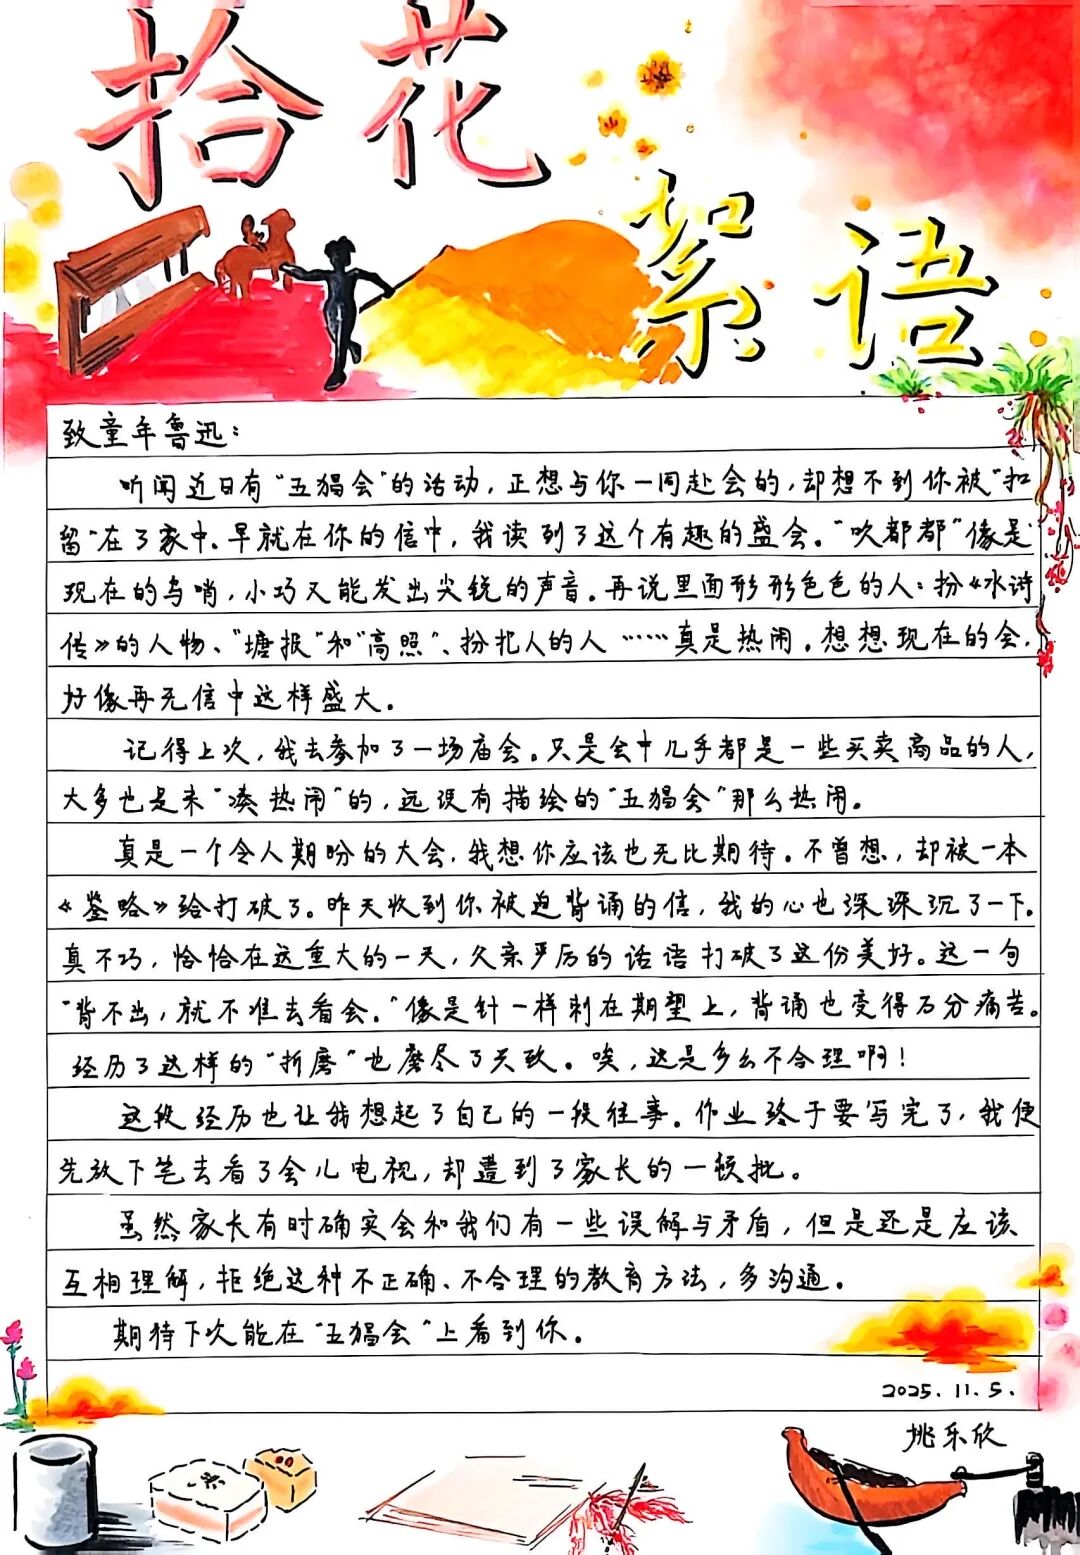 拾花
絮语
致童年鲁迅：
听闻近日有“五猖会”的活动，正想与你一同赴会的，却想不到你被“扣
留”在了家中。早就在你的信中，我读到了这个有趣的盛会。“吹都都”像是
现在的鸟哨，小巧又能发出尖锐的声音。再说里面形形色色的人：扮《水浒
传》的人物、“塘报”和“高照”、扮犯人的人……真是热闹。想想现在的会，
好像再无信中这样盛大。
记得上次，我去参加了一场庙会。只是会中几乎都是一些买卖商品的人，
大多也是来“凑热闹”的，远没有描绘的“五猖会”那么热闹。
真是一个令人期盼的大会，我想你应该也无比期待。不曾想，却被一本
《鉴略》给打破了。昨天收到你被迫背诵的信，我的心也深深沉了一下。
真不巧，恰恰在这重大的一天，父亲严厉的话语打破了这份美好。这一句
“背不出，就不准去看会。”像是针一样刺在期望上，背诵也变得万分痛苦。
经历了这样的“折磨”也磨尽了天致。唉，这是多么不合理啊！
这段经历也让我想起了自己的一段往事。作业终于要写完了，我便
先放下笔去看了会儿电视，却遭到了家长的一顿批。
虽然家长有时确实会和我们有一些误解与矛盾，但是还是应该
互相理解，拒绝这种不正确、不合理的教育方法，多沟通。
期待下次能在“五猖会”上看到你。
2025.11.5.
姚乐欣